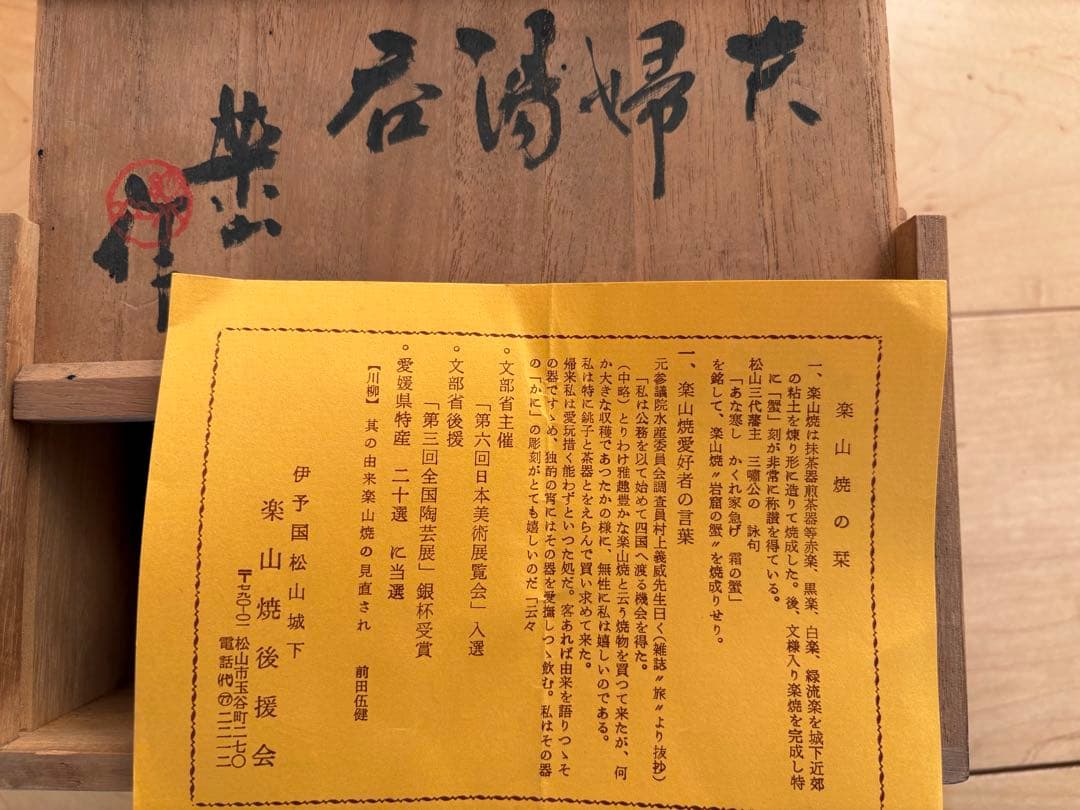 夫婦湯呑
楽山
作
楽山焼の栞
一、楽山焼は抹茶器煎茶器等赤楽、黒楽、白楽、緑流楽を城下近郊
の粘土を煉り形に造りて焼成した。後、文様入り楽焼を完成し特
に「蟹」刻が非常に称讃を得ている。
松山三代藩主 三嘯公の 詠句
「あな寒し かくれ家急げ 霜の蟹」
を銘して、楽山焼〝岩窟の蟹〟を焼成りせり。
一、楽山焼愛好者の言葉
元参議院水産委員会調査員村上義威先生曰く(雑誌〝旅〟より抜抄)
「私は公務を以て始めて四国へ渡る機会を得た。
(中略)とりわけ雅趣豊かな楽山焼と云う焼物を買つて来たが、何
か大きな収穫であつたかの様に、無性に私は嬉しいのである。
私は特に銚子と茶器とをえらんで買い求めて来た。
帰来私は愛玩措く能わずといつた処だ。客あれば由来を語りつゝそ
の器ですゝめ、独酌の宵にはその器を愛撫しつゝ飲む。私はその器
の「かに」の彫刻がとても嬉しいのだ「云々
。文部省主催
「第六回日本美術展覧会」入選
。文部省後援
「第三回全国陶芸展」銀杯受賞
。愛媛県特産 二十選 に当選
【川柳】 其の由来楽山焼の見直され 前田伍健
伊予国松山城下
楽山焼後援会
〒七九〇-〇一 松山市玉谷町二七〇
電話(代)⑦二二一二